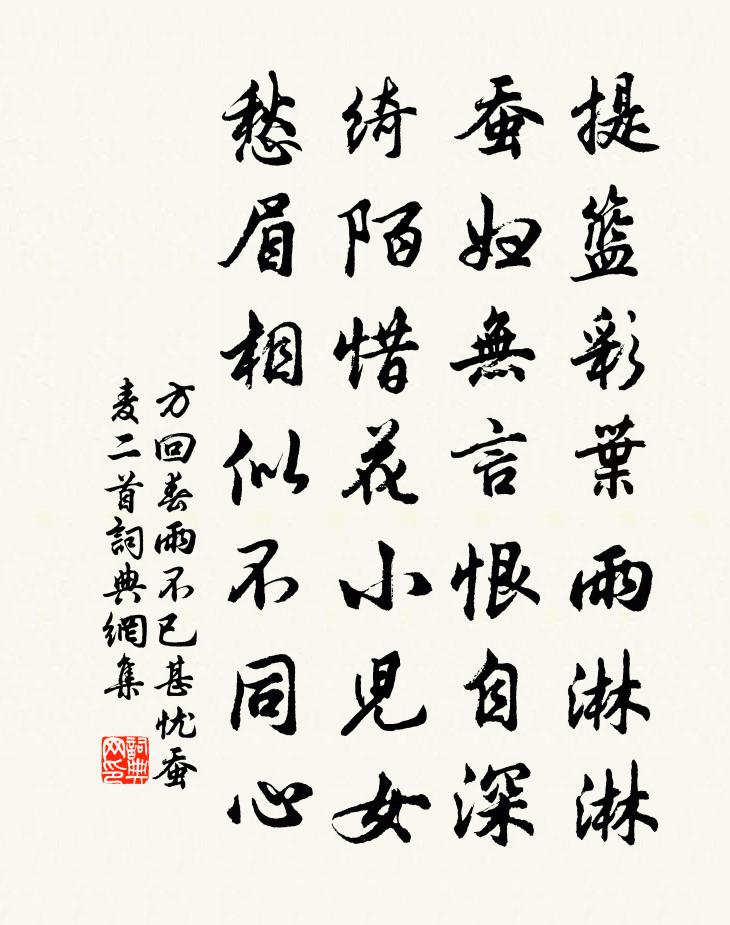 提籃彩葉雨淋淋
蚕妇無言恨自深
綺陌惜花小児女
愁眉相似不同心
方回春雨不已甚忧蚕
麦二首詞典網集
詞典网印